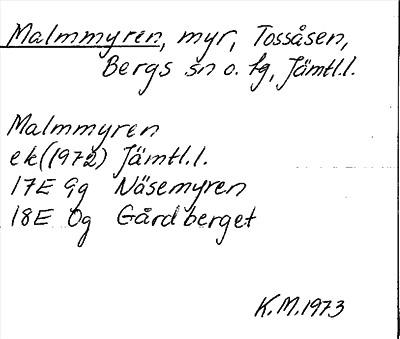 Malmmyren, myr, Tossåsen,
Bergs sn o. tg, Jämtl.l.
Malmmyren
ek(1972) Jämtl.l.
17E 9g Näsemyren
18E 0g Gårdberget
K.M.1973